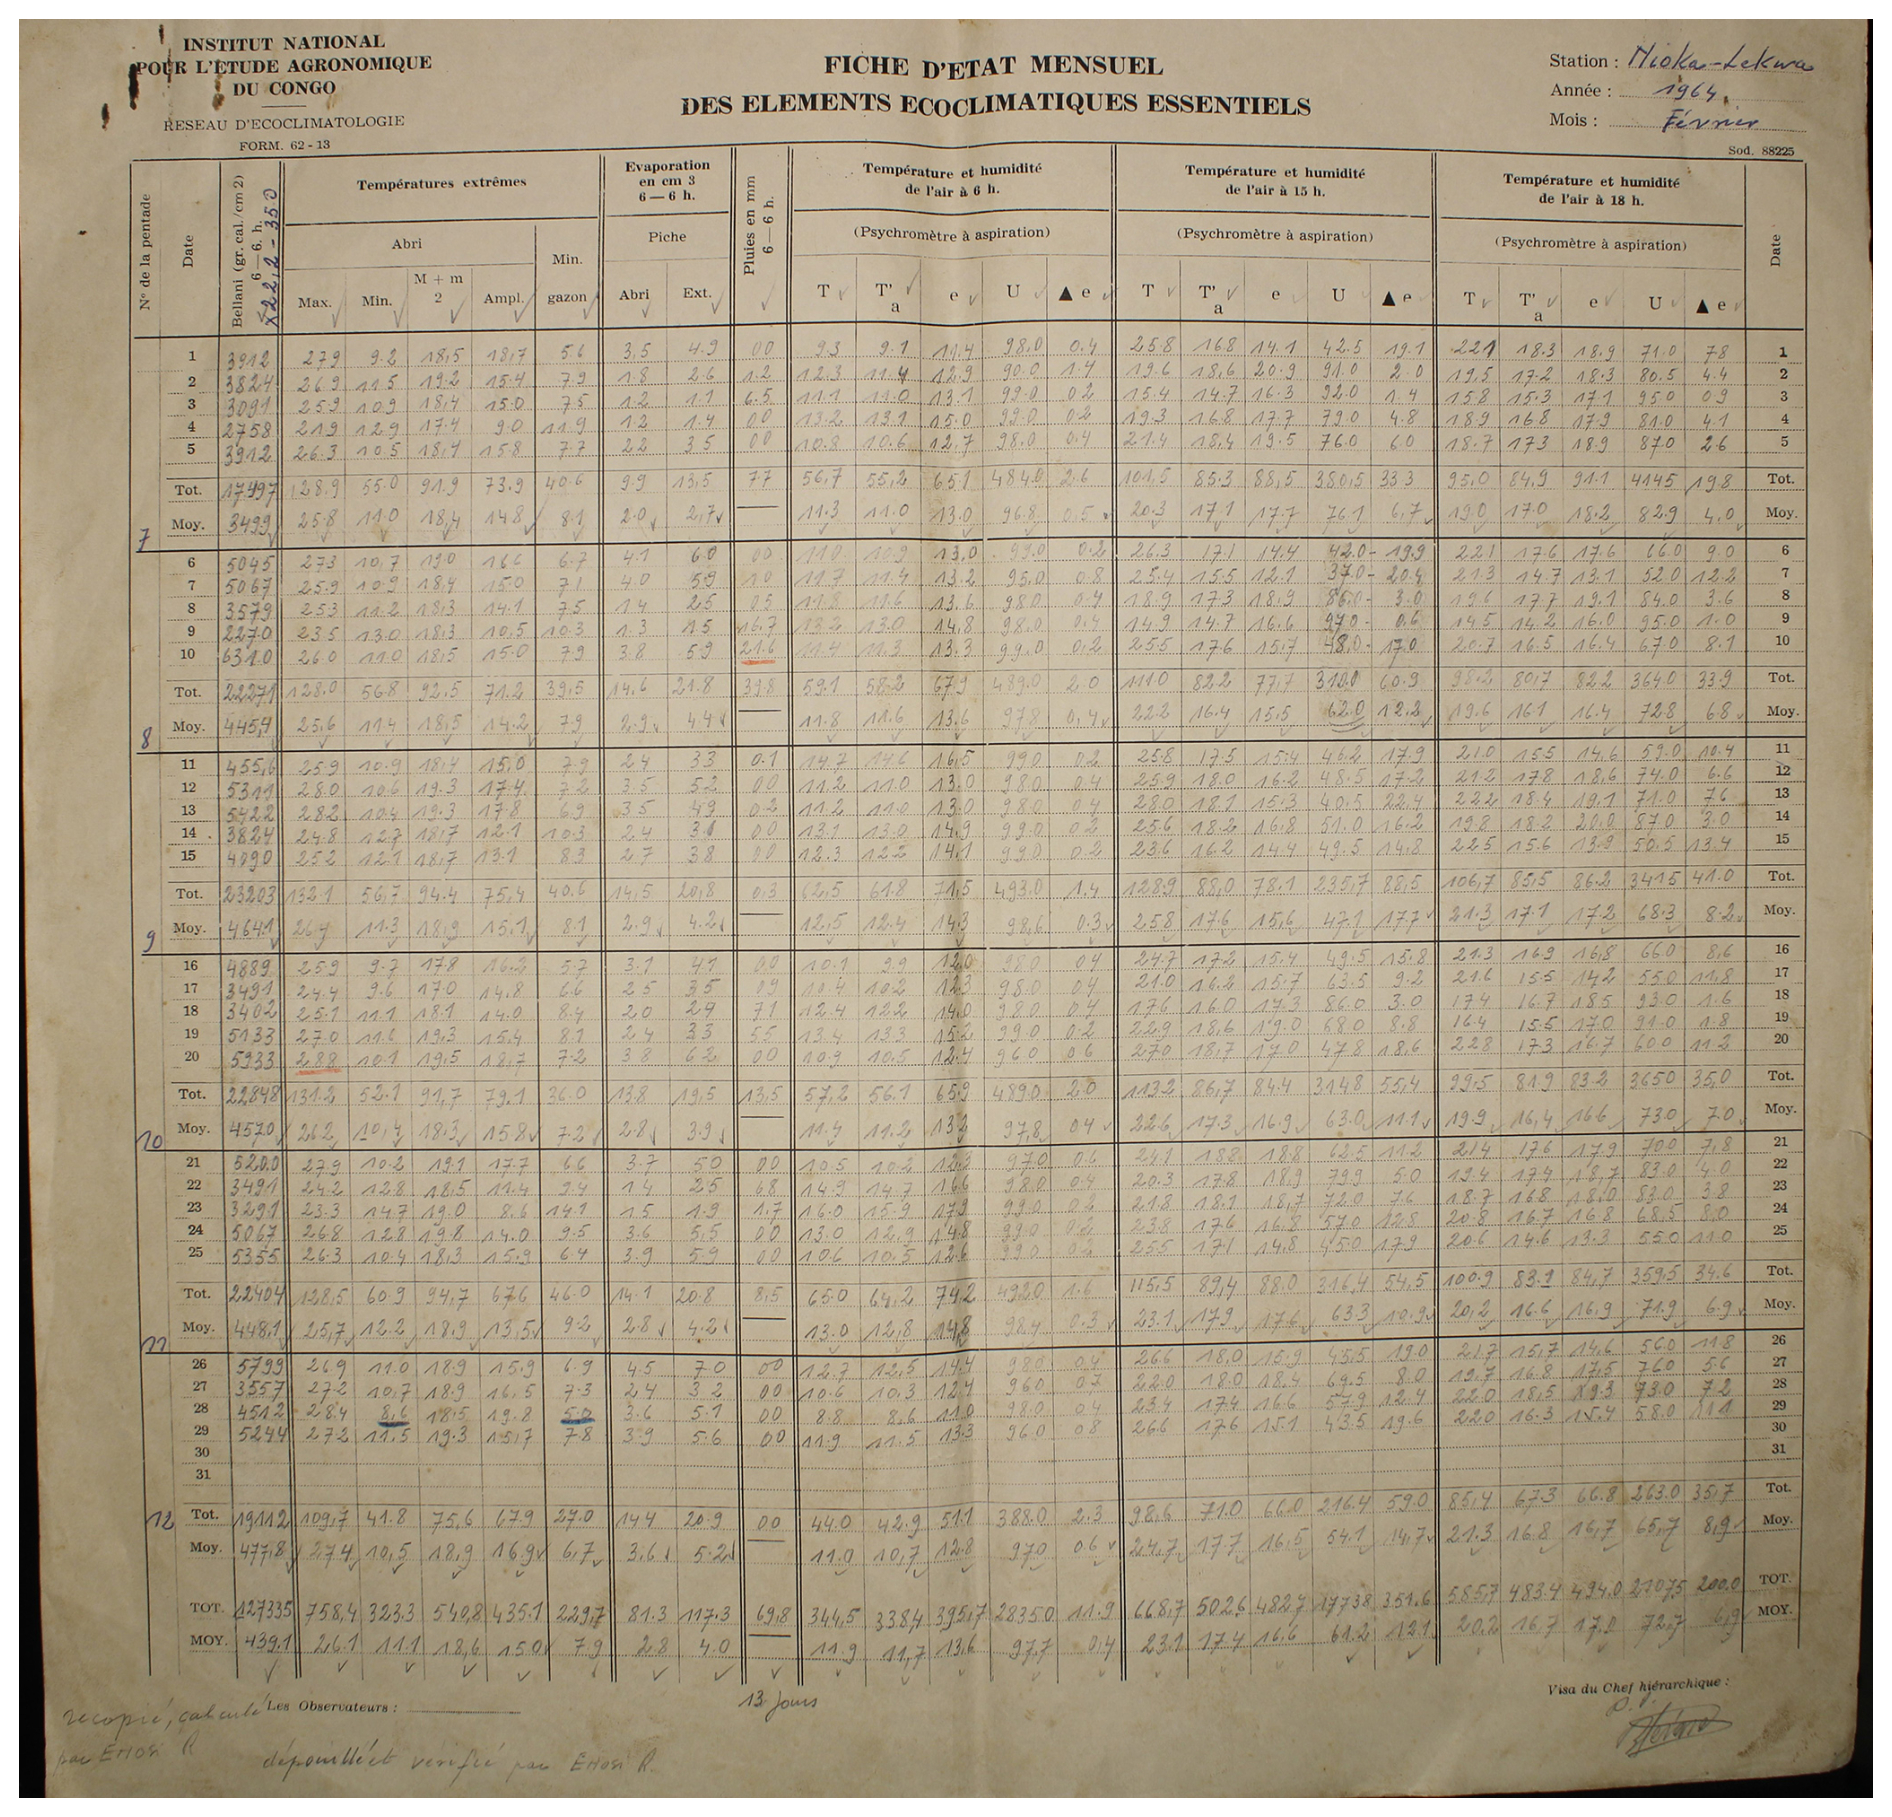 INSTITUT NATIONAL
POUR L'ETUDE AGRONOMIQUE
DU CONGO
RESEAU D'ECOCLIMATOLOGIE
FORM. 62 - 13
FICHE D'ETAT MENSUEL
DES ELEMENTS ECOCLIMATIQUES ESSENTIELS
Station : Nioka-Lekwa
Année : 1964
Mois : Février
Sod. 88225
N° de la pentade
Date
Bellani (gr. cal./cm 2) 6 — 6. h.
Températures extrêmes
Abri
Max. Min. M + m 2 Ampl.
Min. gazon
Evaporation en cm 3 6 — 6 h.
Piche
Abri Ext.
Pluies en mm 6 — 6 h.
Température et humidité de l'air à 6 h.
(Psychromètre à aspiration)
T T'a e U ▲ e
Température et humidité de l'air à 15 h.
(Psychromètre à aspiration)
T T'a e U ▲ e
Température et humidité de l'air à 18 h.
(Psychromètre à aspiration)
T T'a e U ▲ e
Date
1 3912 27.9 9.2 18,5 18,7 5.6 3,5 4.9 00 9.3 9.1 11.4 98.0 0.4 25.8 16.8 14.1 42.5 19.1 22.1 18.3 18.9 71.0 7.8 1
2 3824 26.9 11.5 19.2 15.4 7.9 1.8 2.6 1.2 12.3 11.4 12.9 90.0 1.4 19.6 18,6 20.9 91.0 2.0 19,5 17.2 18.3 80.5 4.4 2
3 3091 25.9 10.9 18,4 15.0 7.5 1.2 1.1 6.5 11.1 11.0 13.1 99.0 0.2 15.4 14.7 16.3 92.0 1.4 15.8 15.3 17.1 95.0 0.9 3
4 2758 21.9 12.9 17.4 9.0 11.9 1.2 1.4 00 13.2 13.1 15.0 99.0 0.2 19.3 16.8 17.7 79.0 4.8 18.9 16.8 17.9 81.0 4.1 4
5 3912 26.3 10.5 18,4 15.8 7.7 2.2 3.5 00 10.8 10.6 12.7 98.0 0.4 21.4 18,4 19.5 76.0 6.0 18.7 17.3 18.9 87.0 2.6 5
Tot. 17497 128.9 55.0 91.9 73.9 40.6 9.9 13,5 7.7 56,7 55,2 65.1 484.0 2.6 101,5 85.3 88,5 380,5 33.3 95,0 84,9 91.1 414.5 19.8 Tot.
7 Moy. 3499 25.8 11.0 18,4 14.8 8.1 2.0 2,7 11.3 11.0 13.0 96.8 0,5 20.3 17.1 17.7 76.1 6,7 19.0 17.0 18.2 82.9 4.0 Moy.
6 5045 27.3 10,7 19.0 16.6 6.7 4.1 6.0 00 11.0 10.9 13.0 99.0 0.2 26.3 17.1 14.4 42.0 19.9 22.1 17.6 17.6 66.0 9.0 6
7 5067 25.9 10.9 18,4 15.0 7.1 4.0 5.9 1.0 11.7 11.4 13.2 95.0 0.8 25.4 15.5 12.1 37.0 20.4 21.3 14.7 13.1 52.0 12.2 7
8 3579 25.3 11.2 18.3 14.1 7.5 1.4 2.5 0.5 11.8 11.6 13.6 98.0 0.4 18.9 17.3 18.9 86.0 3.0 19.6 17.7 19.1 84.0 3.6 8
9 2270 23.5 13.0 18.3 10.5 10.3 1.3 1.5 16.7 13.2 13.0 14.8 98.0 0.4 14.9 14.7 16.6 97.0 0.6 14.5 14.2 16.0 95.0 1.0 9
10 6310 26.0 11.0 18,5 15.0 7.9 3.8 5.9 21.6 11.4 11.3 13.3 99.0 0.2 25.5 17.6 15.7 48.0 17.0 20.7 16.5 16.4 67.0 8.1 10
Tot. 22271 128.0 56.8 92.5 71.2 39.5 14.6 21.8 39.8 59.1 58.2 67.9 489.0 2.0 111.0 82.2 77.7 310.0 60.9 98.2 80,7 82.2 364.0 33.9 Tot.
8 Moy. 4454 25.6 11.4 18,5 14.2 7.9 2.9 4.4 11.8 11.6 13.6 97.8 0.4 22.2 16.4 15.5 62.0 12.2 19.6 16.1 16.4 72.8 6.8 Moy.
11 455,6 25.9 10.9 18,4 15.0 7.9 2.4 3.3 0.1 14.7 14.6 16,5 99.0 0.2 25.8 17.5 15.4 46.2 17.9 21.0 15.5 14.6 59.0 10.4 11
12 5311 28.0 10.6 19.3 17.4 7.2 3.5 5.2 00 11.2 11.0 13.0 98.0 0.4 25.9 18.0 16.2 48.5 17.2 21.2 17.8 18.6 74.0 6.6 12
13 5422 28.2 10.4 19.3 17.8 6.9 3.5 4.9 0.2 11.2 11.0 13.0 98.0 0.4 28.0 18.1 15.3 40.5 22.4 22.2 18.4 19.1 71.0 7.6 13
14 3824 24.8 12.7 18,7 12.1 10.3 2.4 3.6 00 13.1 13.0 14.9 99.0 0.2 25.6 18.2 16.8 51.0 16.2 19.8 18.2 20.0 87.0 3.0 14
15 4090 25.2 12.1 18,7 13.1 8.3 2.7 3.8 00 12.3 12.2 14.1 99.0 0.2 23.6 16.2 14.4 49.5 14.8 22.5 15.6 13.9 50.5 13.4 15
Tot. 23203 132.1 56,7 94.4 75,4 40.6 14,5 20,8 0,3 62,5 61.8 71,5 493.0 1.4 128.9 88,0 78.1 235,7 88,5 106,7 85,5 86.2 341.5 41.0 Tot.
9 Moy. 4641 26.4 11.3 18,9 15,1 8.1 2.9 4.2 12,5 12.4 14.3 98,6 0.3 25.8 17.6 15,6 47.1 17.7 21.3 17.1 17.2 68.3 8.2 Moy.
16 4889 25.9 9.7 17.8 16.2 5.7 3.1 4.1 00 10.1 9.9 12.0 98.0 0.4 24.7 17.2 15.4 49.5 15.8 21.3 16.9 16,8 66.0 8,6 16
17 3491 24.4 9.6 17.0 14.8 6.6 2.5 3.5 0.9 10.4 10.2 12.3 98.0 0.4 21.0 16.2 15.7 63.5 9.2 21.6 15.5 14.2 55.0 11.8 17
18 3402 25.1 11.1 18.1 14.0 8.4 2.0 2.9 7.1 12.4 12.2 14.0 98.0 0.4 17.6 16.0 17.3 86.0 3.0 17.4 16.7 18.5 93.0 1.6 18
19 5133 27.0 11.6 19.3 15.4 8.1 2.4 3.3 5.5 13.4 13.3 15.2 99.0 0.2 22.9 18,6 19.0 68.0 8.8 16.4 15.5 17.0 91.0 1.8 19
20 5933 28.8 10.1 19,5 18,7 7.2 3.8 6.2 00 10.9 10.5 12.4 96.0 0.6 27.0 18,7 17.0 47.8 18.6 22.8 17.3 16.7 60.0 11.2 20
Tot. 22848 131.2 52.1 91,7 79.1 36.0 13.8 19,5 13,5 57,2 56.1 65.9 489.0 2.0 113.2 86,7 84.4 314.8 55,4 99.5 81.9 83.2 365.0 35,0 Tot.
10 Moy. 4570 26.2 10,4 18.3 15.8 7.2 2.8 3.9 11.4 11.2 13.2 97,8 0.4 22.6 17.3 16.9 63.0 11.1 19.9 16,4 16.6 73.0 7.0 Moy.
21 5200 27.9 10.2 19.1 17.7 6.6 3.7 5.0 00 10.5 10.2 12.3 97.0 0.6 24.1 18.8 18.8 62.5 11.2 21.4 17.6 17.9 70.0 7,8 21
22 3491 24.2 12.8 18,5 11.4 9.4 1.4 2.5 6.8 14.9 14.7 16.6 98.0 0.4 20.3 17.8 18,9 79.9 5.0 19.4 17.4 18,7 83.0 4.0 22
23 3291 23.3 14.7 19.0 8.6 14.1 1.5 1.9 1.7 16.0 15.9 17.9 99.0 0.2 21.8 18.1 18,7 72.0 7.6 18.7 16.8 18.0 83.0 3.8 23
24 5067 26.8 12.8 19.8 14.0 9.5 3.6 5,5 00 13.0 12.9 14.8 99.0 0.2 23.8 17.6 16.8 57.0 12.8 20.8 16.7 16.8 68,5 8.0 24
25 5355 26.3 10.4 18.3 15.9 6.4 3.9 5.9 00 10.6 10.5 12.6 99.0 0.2 25.5 17.1 14.8 45.0 17.9 20.6 14.6 13.3 55.0 11.0 25
Tot. 22404 128,5 60.9 94,7 67.6 46.0 14.1 20.8 8,5 65.0 64,2 74.2 492.0 1.6 115,5 89,4 88.0 316,4 54,5 100.9 83.1 84,7 359.5 34.6 Tot.
11 Moy. 448,1 25,7 12.2 18,9 13,5 9.2 2.8 4.2 13.0 12,8 14,8 98.4 0.3 23.1 17.9 17.6 63.3 10.9 20,2 16.6 16,9 71.9 6.9 Moy.
26 5799 26.9 11.0 18.9 15.9 6.9 4.5 7.0 00 12.7 12,5 14.4 98.0 0.4 26.6 18.0 15.9 45.5 19.0 21.7 15,7 14.6 56.0 11.8 26
27 3557 27.2 10,7 18.9 16,5 7.3 2.4 3.2 00 10.6 10.3 12.4 96.0 0.7 22.0 18.0 18.4 69.5 8.0 19.7 16.8 17.5 76.0 5.6 27
28 4512 28.4 8,6 18,5 19.8 5.0 3.6 5.1 00 8.8 8.6 11.0 98.0 0.4 23.4 17.4 16.6 57.9 12.4 22.0 18,5 19.3 73.0 7.2 28
29 5244 27.2 11.5 19.3 15,7 7.8 3.9 5.6 00 11.9 11.5 13.3 96.0 0.8 26.6 17.6 15.1 43.5 19.6 22.0 16.3 15.4 58.0 11.1 29
30 30
31 31
12 Tot. 19112 109,7 41.8 75,6 67.9 27.0 14.4 20.9 00 44.0 42.9 51.1 388.0 2.3 98,6 71.0 66.0 216.4 59.0 85,4 67.3 66.8 263.0 35,7 Tot.
Moy. 477,8 27.4 10,5 18,9 16,9 6,7 3.6 5.2 11.0 10,7 12.8 97.0 0.6 24,7 17.7 16,5 54.1 14,7 21.3 16.8 16,7 65,7 8,9 Moy.
TOT. 127335 758,4 323.3 540,8 435.1 229,7 81.3 117.3 69,8 344,5 338,4 395,7 2835.0 11.9 668,7 502,6 482.7 1773.8 351.6 585,7 483.4 494.0 2107,5 200.0 TOT.
MOY. 439.1 26.1 11.1 18,6 15.0 7.9 2.8 4.0 11.9 11,7 13,6 97,7 0,4 23.1 17.4 16,6 61.2 12.1 20,2 16,7 17.0 72,7 6,9 MOY.
13 Jours
Les Observateurs :
recopié, calculé
par Errosi R
dépouillé et vérifié par Errosi R.
Visa du Chef hiérarchique :